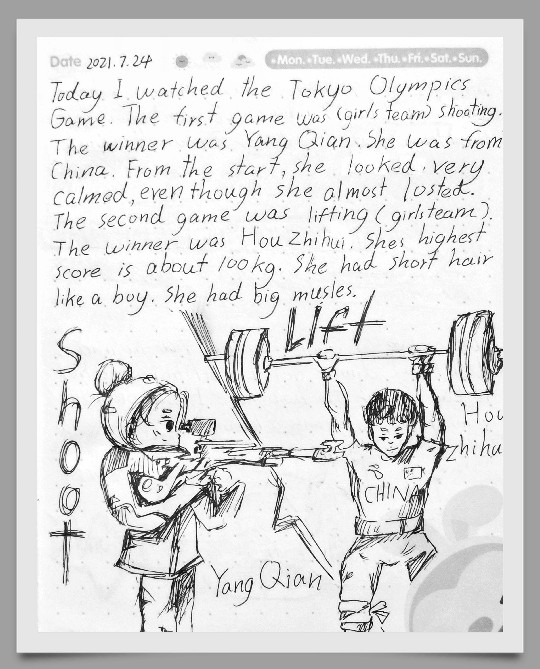 Date 2021.7.24
•Mon.•Tue.•Wed.•Thu.•Fri.•Sat.•Sun.
Today I watched the Tokyo Olympics
Game. The first game was (girls team) shooting.
The winner was Yang Qian. She was from
China. From the start, she looked very
calmed, even though she almost losted.
The second game was lifting (girls team).
The winner was Hou Zhihui. Shes highest
score is about 100kg. She had short hair
like a boy. She had big musles.
Lift
Shoot
Hou
zhihu
CHINA
Yang Qian